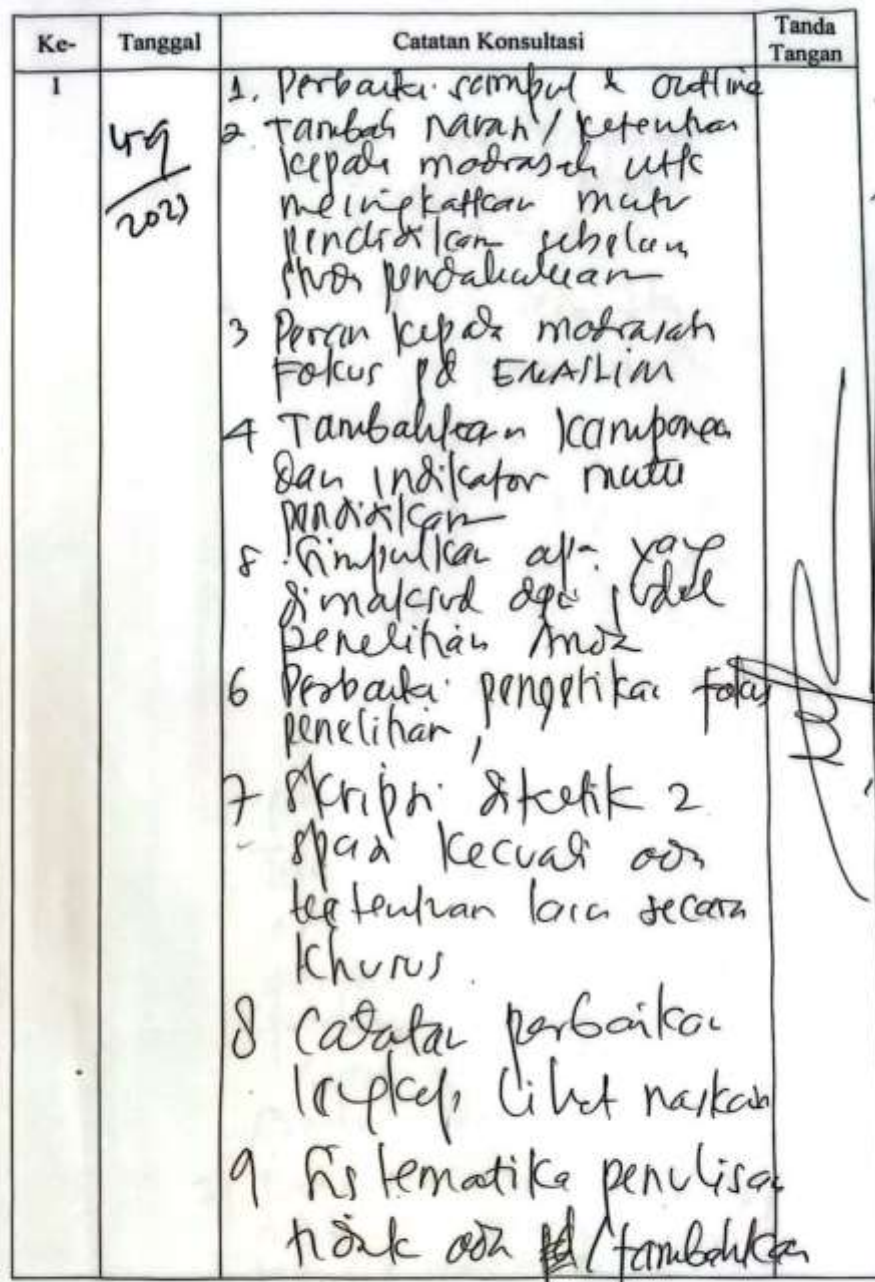 Ke- Tanggal Catatan Konsultasi Tanda Tangan
1
2023
1. Perbaiki sampul & outline
2 Tambah / ketentuan
kepala madrasah utk
meningkatkan mutu
pendidikan sebelum
pendahuluan
3 Peran kepala madrasah
Fokus pd EMASLIM
4 Tambahkan komponen
dan indikator mutu
pendidikan
5 Simpulkan apa yang
dimaksud dgn judul
penelitian Anda
6 Perbaiki pengetikan fokus
penelitian,
7 Skripsi diketik 2
spasi kecuali ada
ketentuan lain secara
khusus
8 Catatan perbaikan
lengkap, lihat naskah
9 Sistematika penulisan
tidak ada / tambahkan